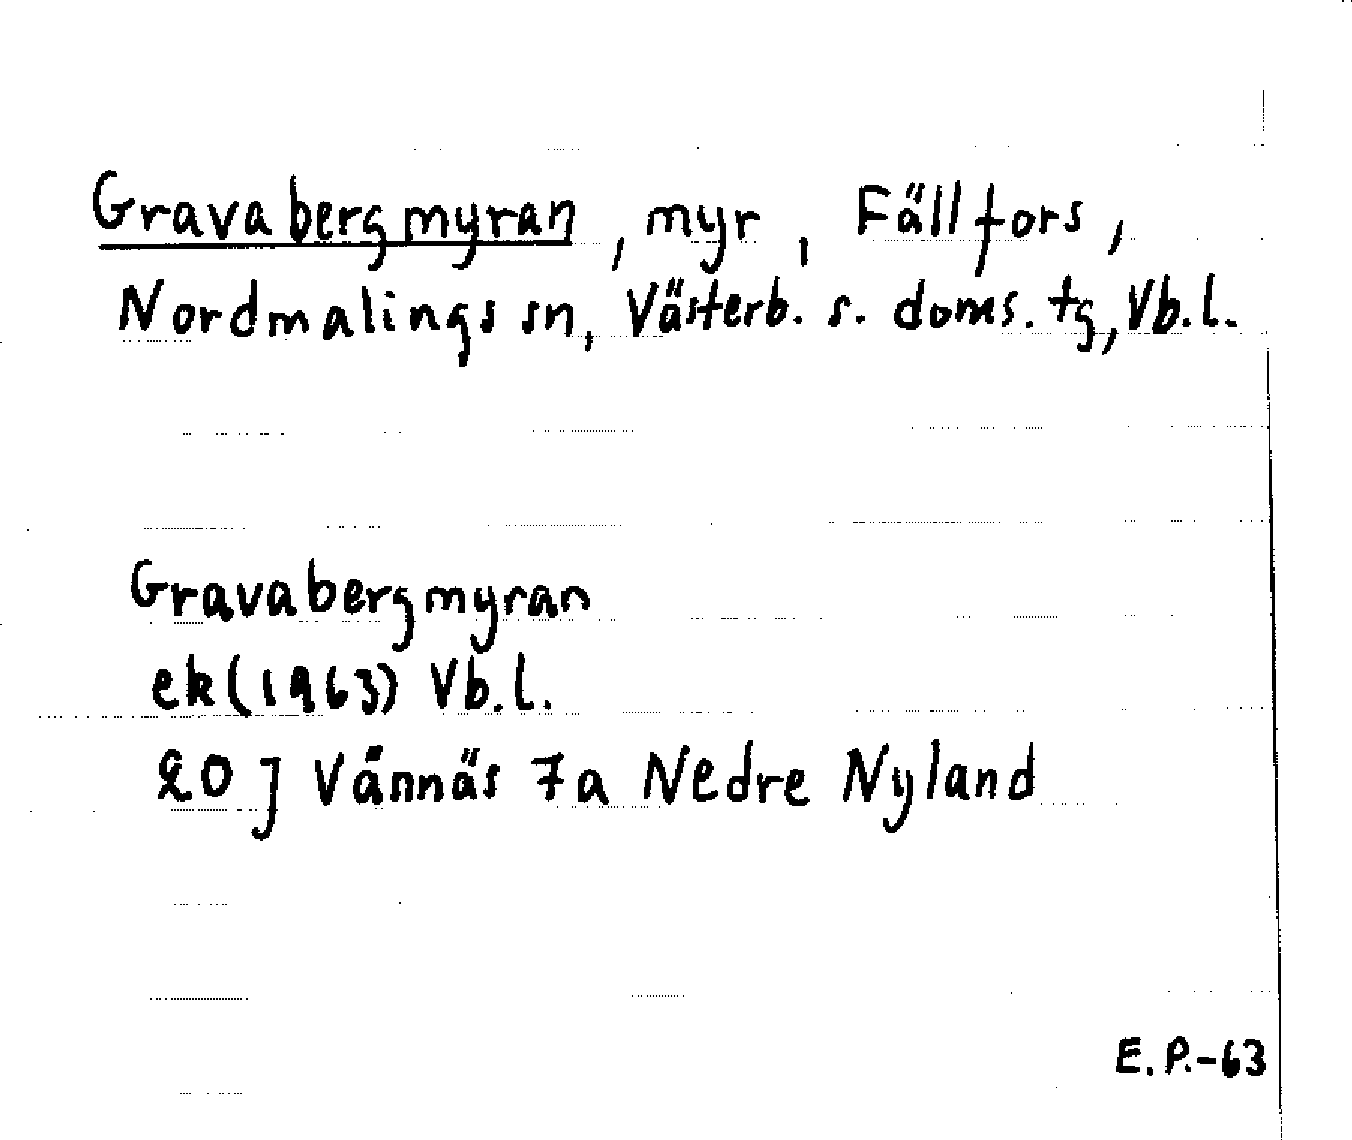 Gravabergmyran, myr, Fällfors,
Nordmalings sn, Västerb. s. doms. tg, Vb.l.
Gravabergmyran
ek (1963) Vb.l.
20 J Vännäs 7a Nedre Nyland
E.P.-63